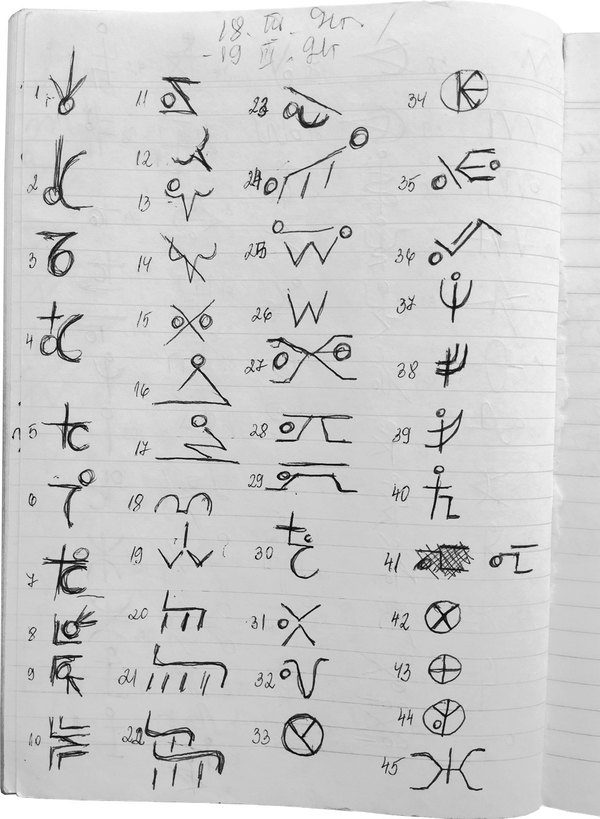 18. III.
-19 III.
1
2
3
4
5
6
7
8
9
10
11
12
13
14
15
16
17
18
19
20
21
22
23
24
25
26
27
28
29
30
31
32
33
34
35
36
37
38
39
40
41
42
43
44
45